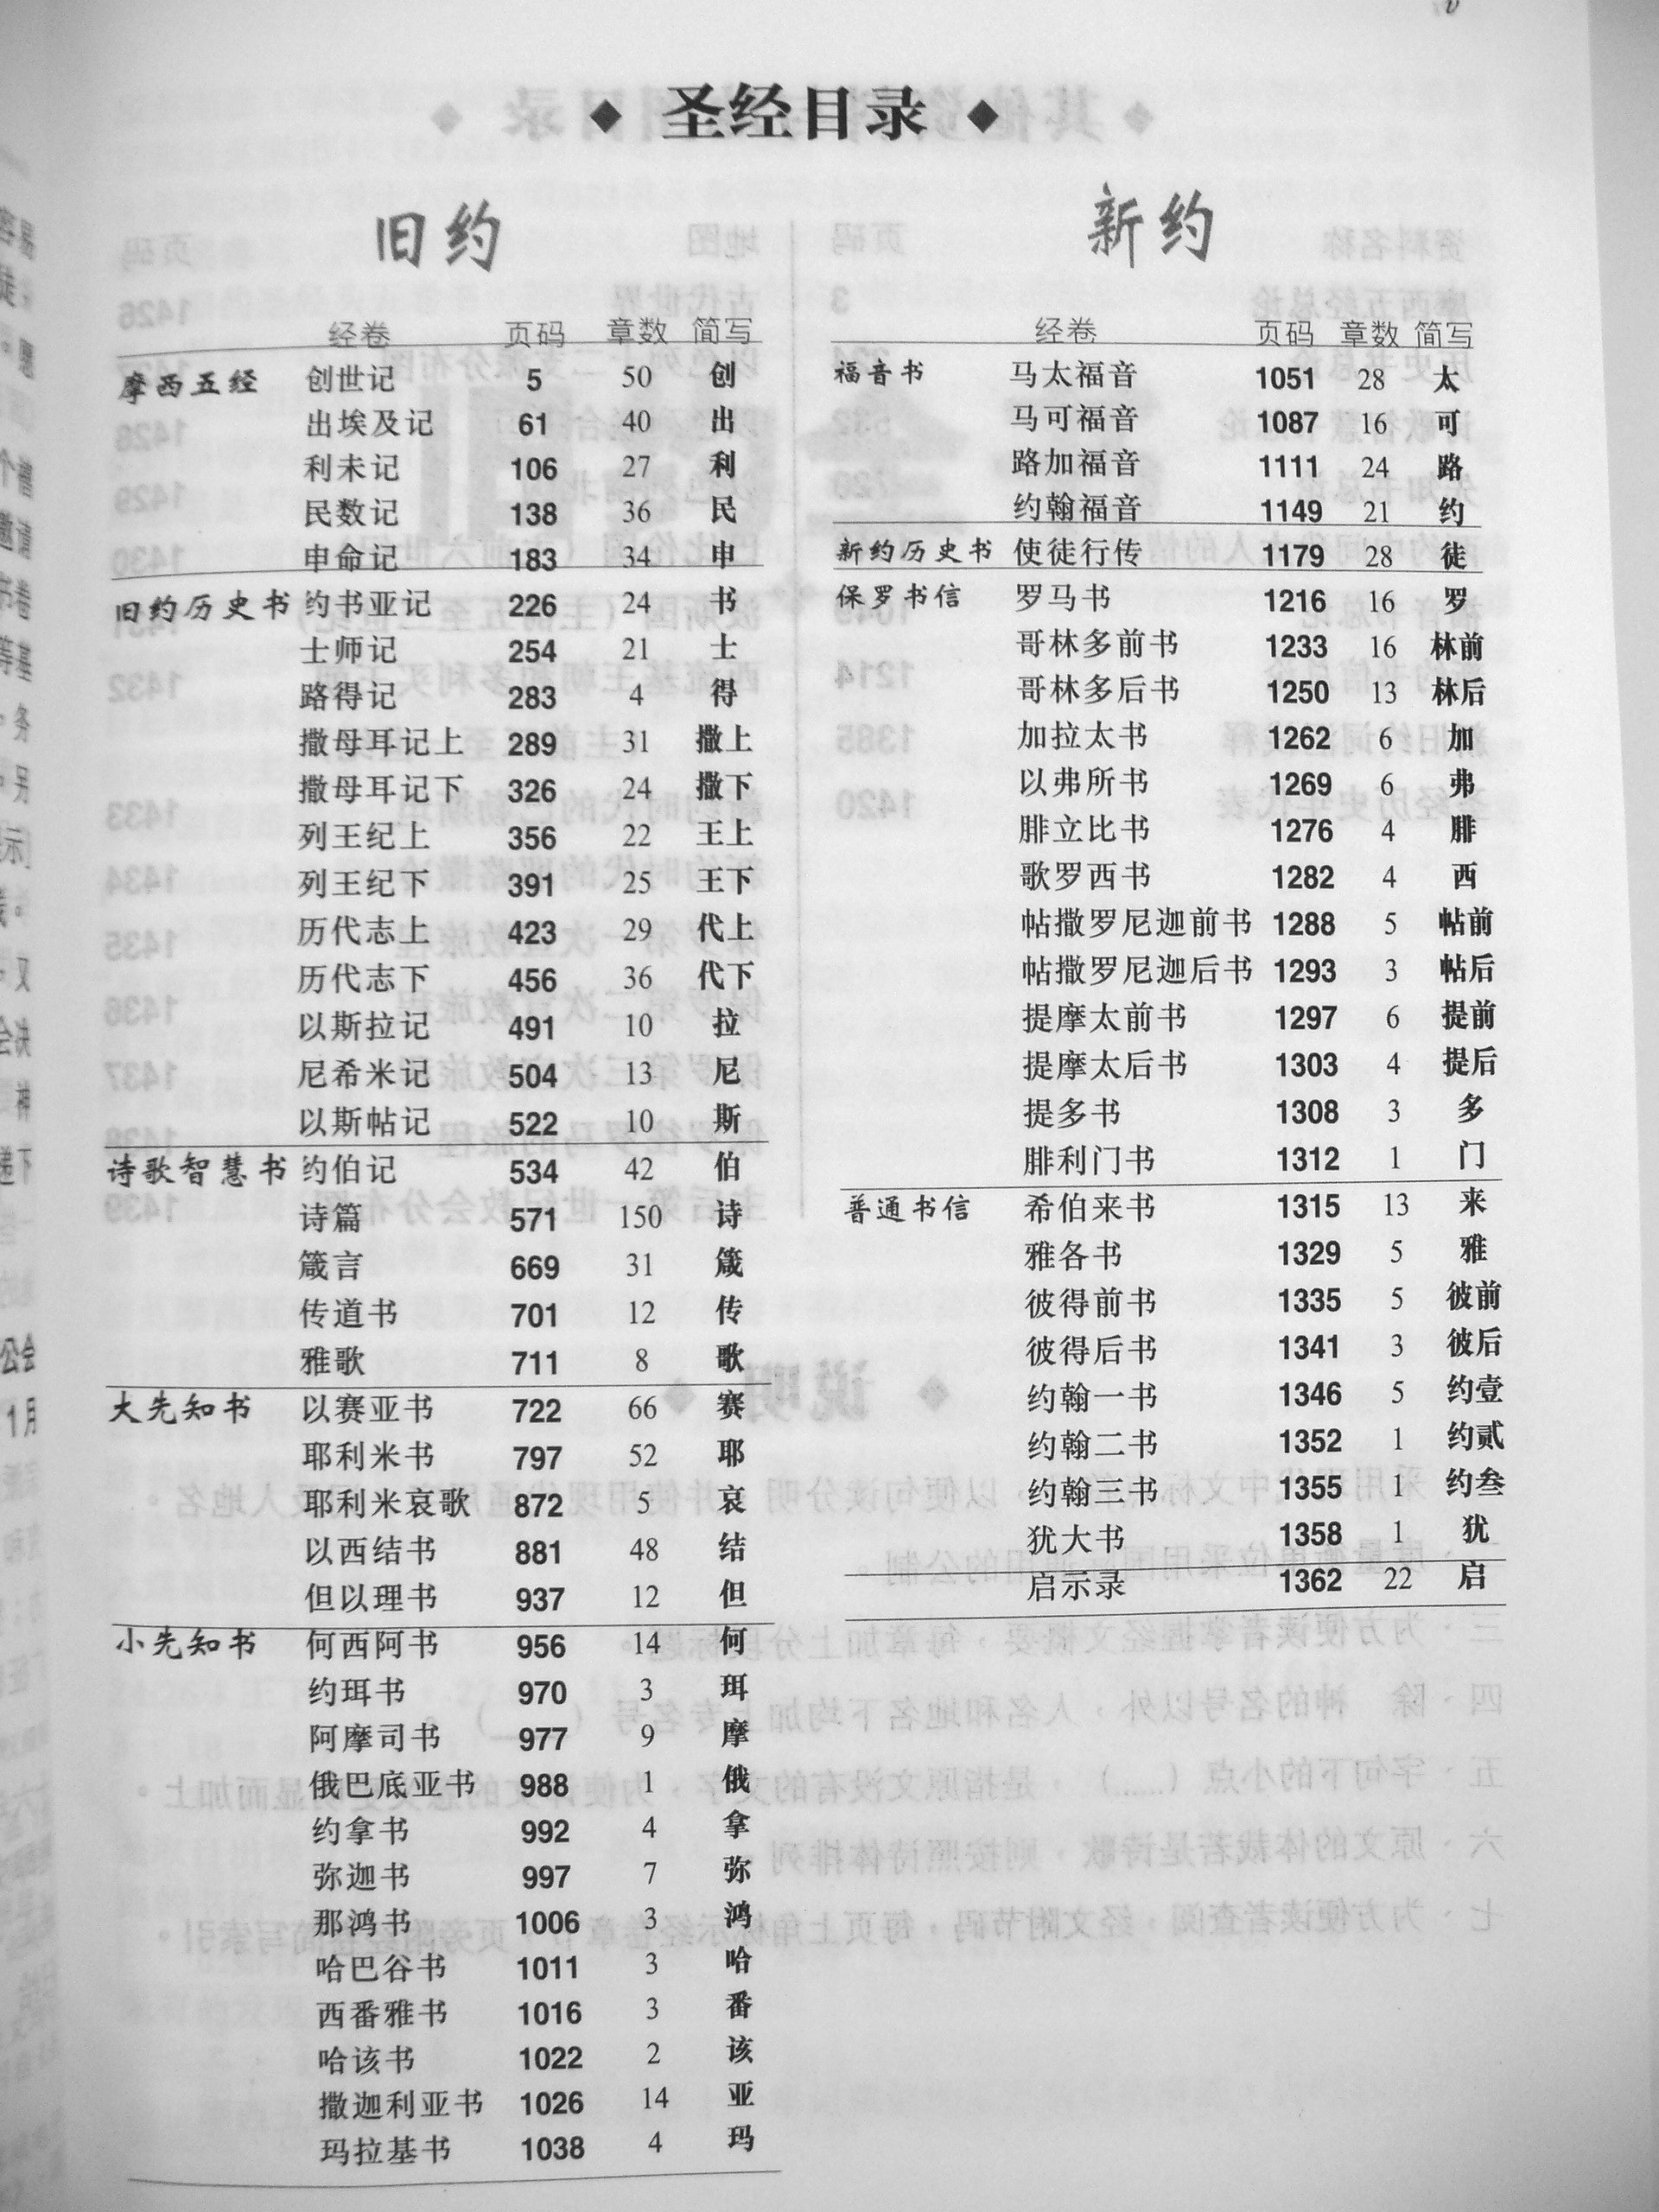 圣经目录
旧约
经卷 页码 章数 简写
摩西五经 创世记 5 50 创
出埃及记 61 40 出
利未记 106 27 利
民数记 138 36 民
申命记 183 34 申
旧约历史书 约书亚记 226 24 书
士师记 254 21 士
路得记 283 4 得
撒母耳记上 289 31 撒上
撒母耳记下 326 24 撒下
列王纪上 356 22 王上
列王纪下 391 25 王下
历代志上 423 29 代上
历代志下 456 36 代下
以斯拉记 491 10 拉
尼希米记 504 13 尼
以斯帖记 522 10 斯
诗歌智慧书 约伯记 534 42 伯
诗篇 571 150 诗
箴言 669 31 箴
传道书 701 12 传
雅歌 711 8 歌
大先知书 以赛亚书 722 66 赛
耶利米书 797 52 耶
耶利米哀歌 872 5 哀
以西结书 881 48 结
但以理书 937 12 但
小先知书 何西阿书 956 14 何
约珥书 970 3 珥
阿摩司书 977 9 摩
俄巴底亚书 988 1 俄
约拿书 992 4 拿
弥迦书 997 7 弥
那鸿书 1006 3 鸿
哈巴谷书 1011 3 哈
西番雅书 1016 3 番
哈该书 1022 2 该
撒迦利亚书 1026 14 亚
玛拉基书 1038 4 玛
新约
经卷 页码 章数 简写
福音书 马太福音 1051 28 太
马可福音 1087 16 可
路加福音 1111 24 路
约翰福音 1149 21 约
新约历史书 使徒行传 1179 28 徒
保罗书信 罗马书 1216 16 罗
哥林多前书 1233 16 林前
哥林多后书 1250 13 林后
加拉太书 1262 6 加
以弗所书 1269 6 弗
腓立比书 1276 4 腓
歌罗西书 1282 4 西
帖撒罗尼迦前书 1288 5 帖前
帖撒罗尼迦后书 1293 3 帖后
提摩太前书 1297 6 提前
提摩太后书 1303 4 提后
提多书 1308 3 多
腓利门书 1312 1 门
普通书信 希伯来书 1315 13 来
雅各书 1329 5 雅
彼得前书 1335 5 彼前
彼得后书 1341 3 彼后
约翰一书 1346 5 约壹
约翰二书 1352 1 约贰
约翰三书 1355 1 约叁
犹大书 1358 1 犹
启示录 1362 22 启